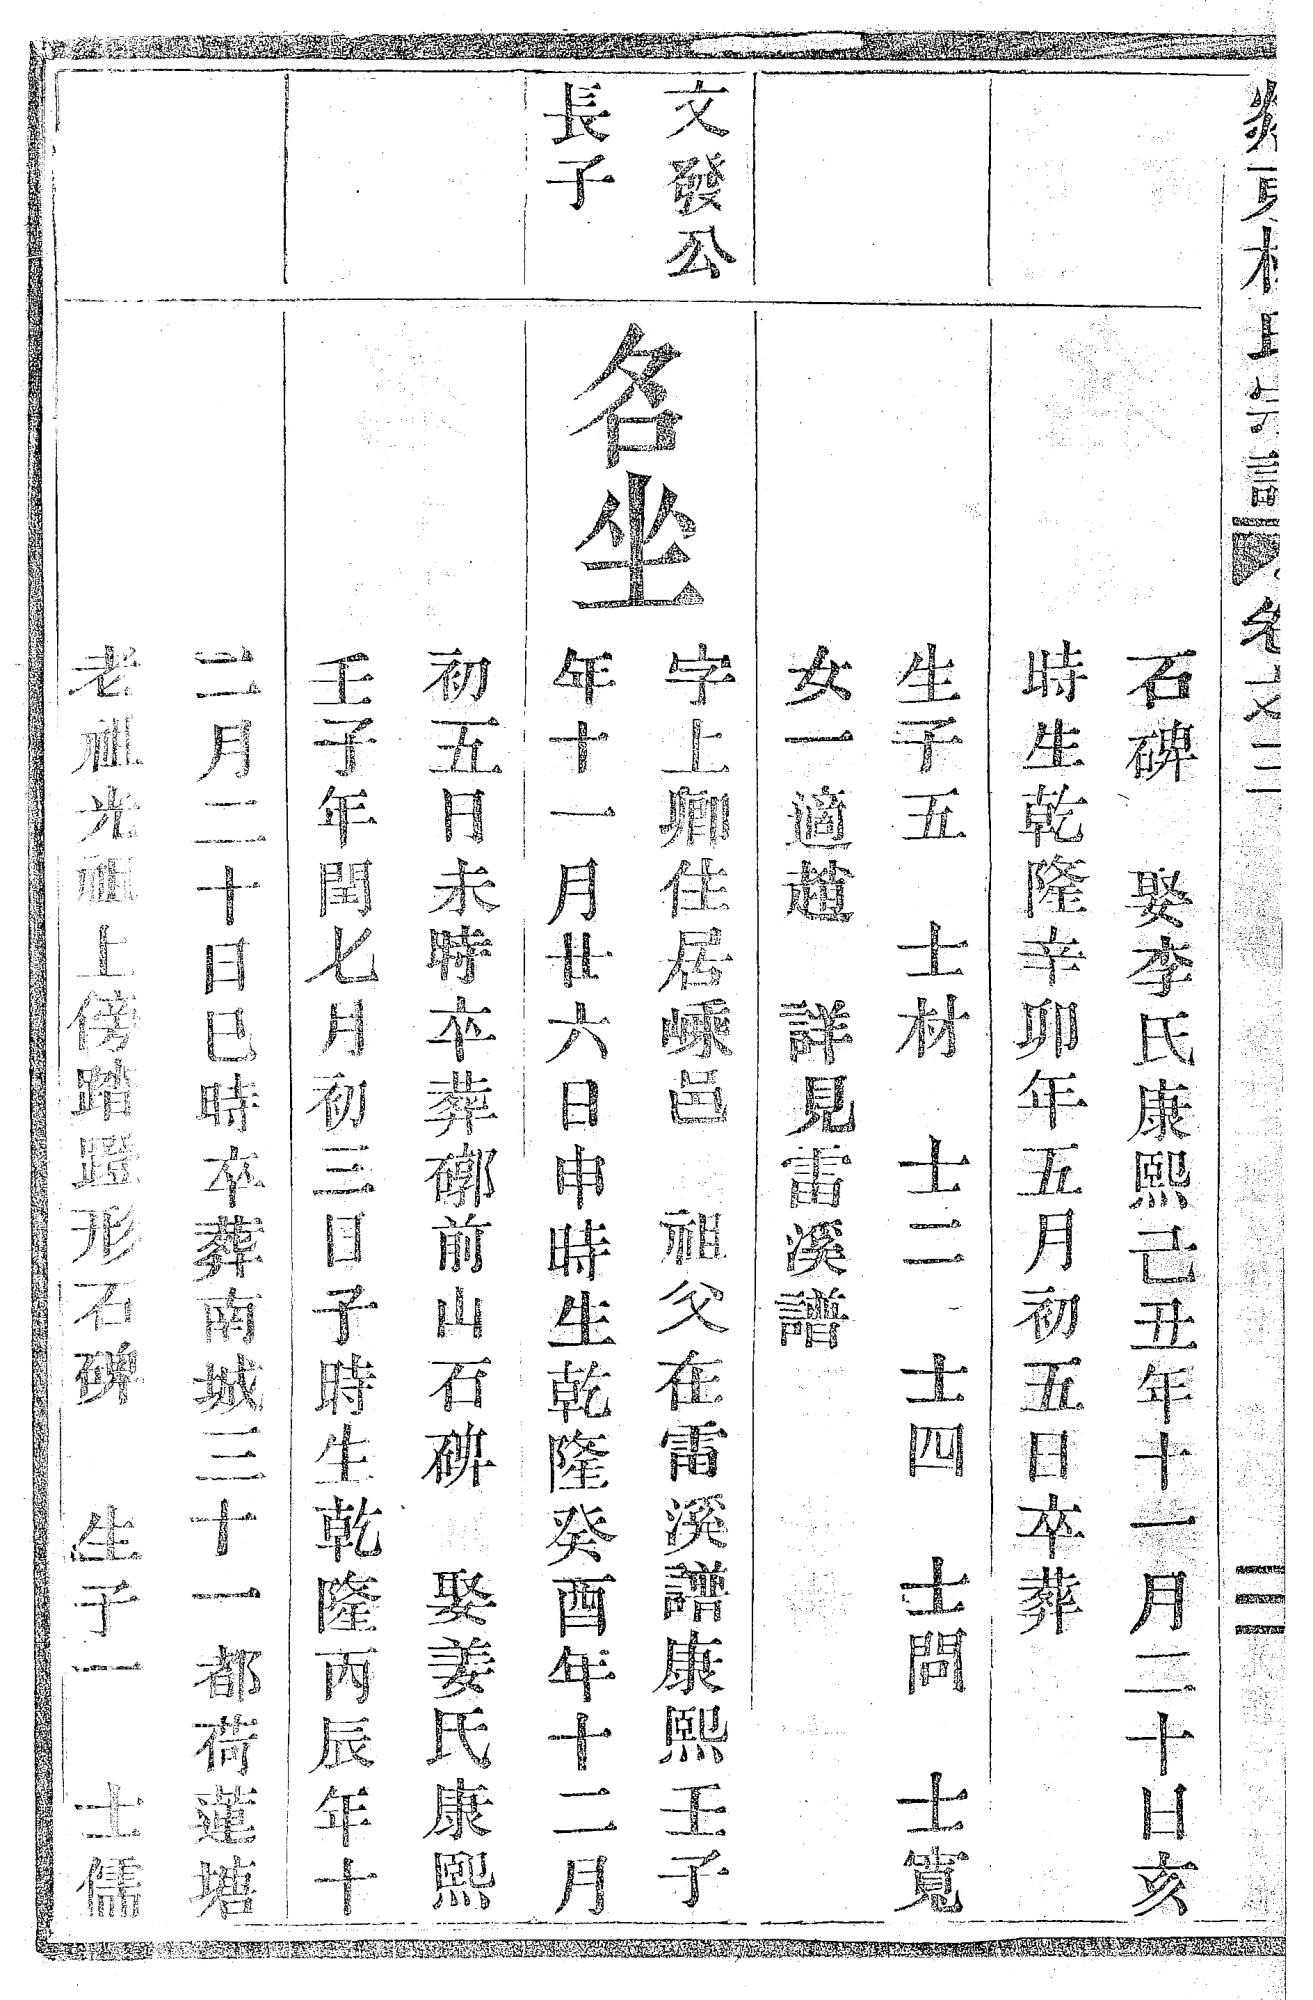 石碑 娶李氏康熙己丑年十一月二十日亥
時生乾隆辛卯年五月初五日卒葬
生子五 士材 士二 士四 士問 士寬
女一適趙 詳見雷溪譜
文發公
長子
名坐
字上卿住居嵊邑 祖父在雷溪譜康熙壬子
年十一月廿六日申時生乾隆癸酉年十二月
初五日未時卒葬鄉前山石碑 娶姜氏康熙
壬子年閏七月初三日子時生乾隆丙辰年十
二月二十日巳時卒葬南城三十一都荷蓮塘
老祖光祖上傍踏蹬形石碑 生子一 士儒
卷之二
三